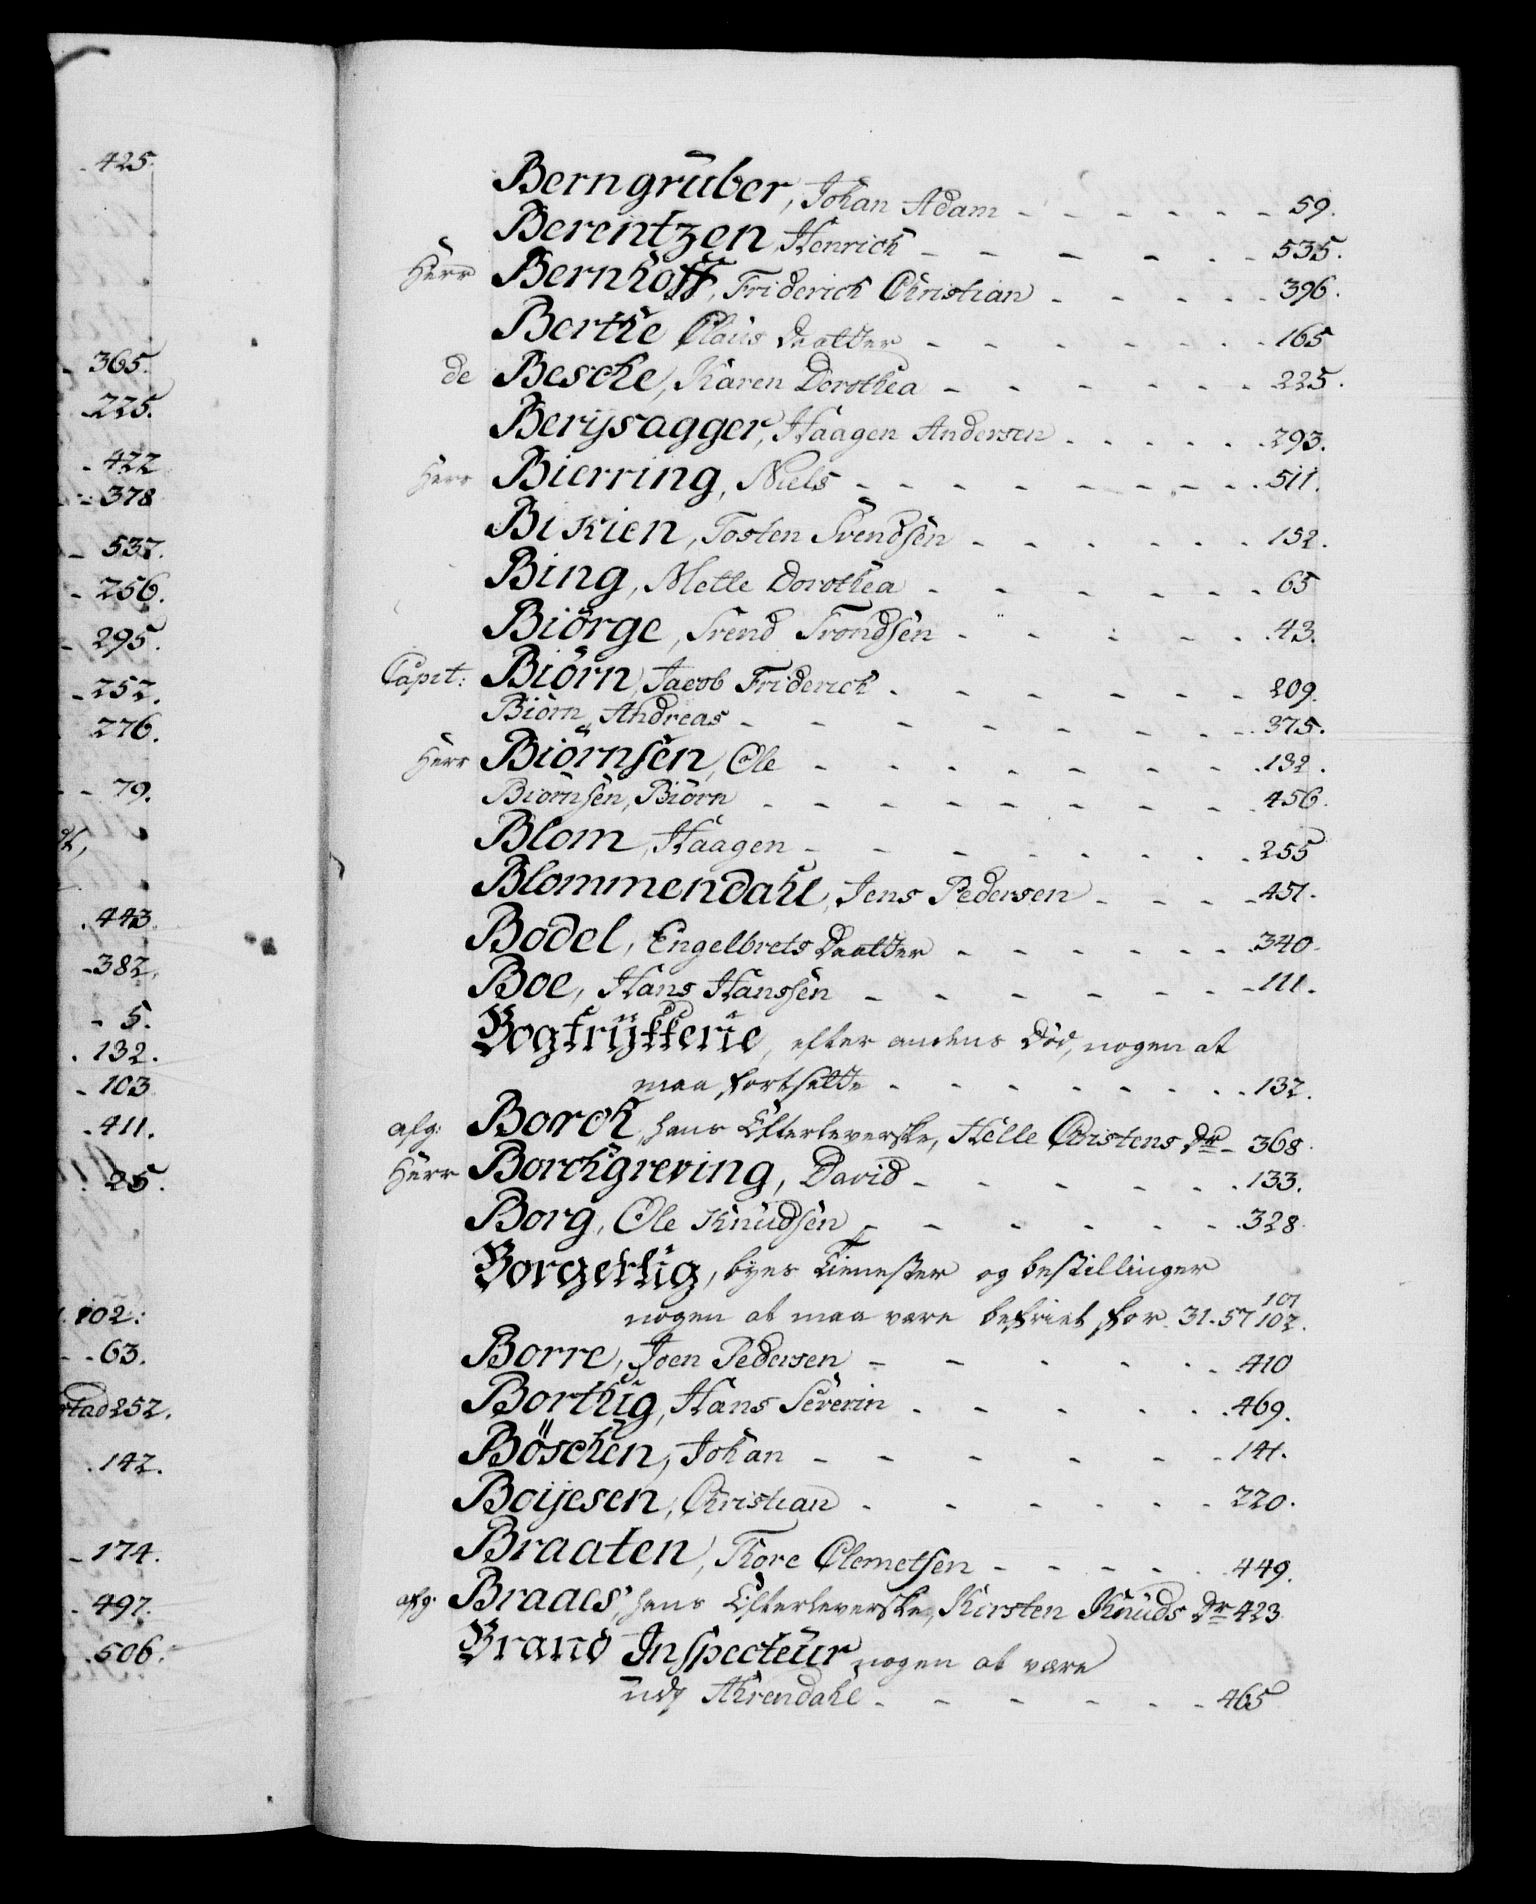 425.
365.
225.
422
378
537.
256.
295.
252.
276.
79.
443.
382.
5.
132.
103
411.
25.
102.
63.
252.
142.
174.
497.
506.
Berngrüber, Johan Adam - - - - - - 59.
Berentzen, Henrich - - - - - - 535.
Herr Bernhoff, Friderich Christian - - - - - 396.
Berthe Claus Daatter - - - - - - 165
de Besche, Karen Dorothea - - - - - - 225.
Berÿsagger, Haagen Andersen - - - - - 293.
Herr Bierring, Niels - - - - - - - - 511.
Bikien, Tosten Svendsen - - - - - - 152.
Bing, Mette Dorothea - - - - - - 65
Biörge, Svend Trondsen - - - - - 43.
Capit: Biörn, Jacob Friderich - - - - - - 209.
Biörn, Andreas - - - - - - - 375.
Herr Biörnsen, Ole - - - - - - - 132.
Biörnsen, Biörn - - - - - - - - 456.
Blom, Haagen - - - - - - - 255
Blommendahl, Jens Pedersen - - - - 451.
Bodel, Engelbrets Daatter - - - - - - 340.
Boe, Hans Hanssen - - - - - - - 111.
Bogtrÿkkerie, efter andens Död, nogen at
maa fortsætte - - - - - - - 132.
afg: Borch, hans Efterleverske, Helle Christens Dr - 368.
Herr Borchgreving, David - - - - - - 133.
Borg, Ole Knüdsen - - - - - - - 328.
Borgerlig, byes Tienester og bestillinger
101
nogen at maa være befriet for. 31. 57 102.
Borre, Joen Pedersen - - - - - - 410
Borthüg, Hans Severin - - - - - - 469.
Böschen, Johan - - - - - - 141.
Boijesen, Christian - - - - - - 220.
Braaten, Thore Clemetsen - - - - - 449.
afg: Braaes, hans Efterleverske, Kirsten Knüds Dr 423.
Brand Inspecteür nogen at være
udj Ahrendahl - - - - - - 465